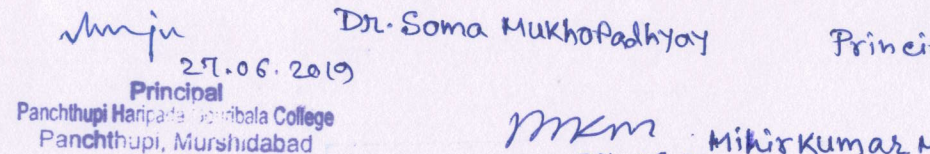 Dr. Soma Mukhopadhyay Princi
27.06.2019
Principal
Panchthupi Haripada Gouribala College
Panchthupi, Murshidabad
Mihir Kumar M